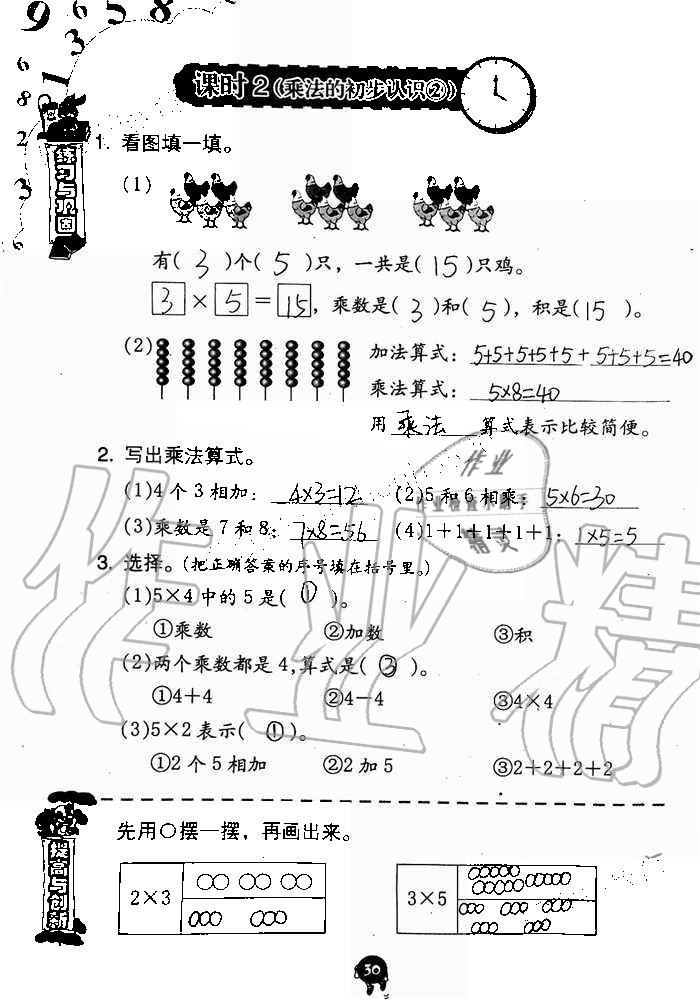 9 3 6 5 8
6 1
8
2
3
6
课时2(乘法的初步认识②)
练习与巩固
1. 看图填一填。
(1)
有( 3 )个( 5 )只，一共是( 15 )只鸡。
3 × 5 = 15，乘数是( 3 )和( 5 )，积是( 15 )。
(2)
加法算式：5+5+5+5+5+5+5+5=40
乘法算式：5×8=40
用 乘法 算式表示比较简便。
2. 写出乘法算式。
(1)4个3相加：4×3=12 (2)5和6相乘：5×6=30
(3)乘数是7和8：7×8=56 (4)1+1+1+1+1：1×5=5
3. 选择。(把正确答案的序号填在括号里。)
(1)5×4中的5是( ① )。
①乘数 ②加数 ③积
(2)两个乘数都是4,算式是( ③ )。
①4+4 ②4-4 ③4×4
(3)5×2表示( ① )。
①2个5相加 ②2加5 ③2+2+2+2
提高与创新
先用○摆一摆，再画出来。
2×3 3×5
30
作业
作业检查小助手
精灵
作业精